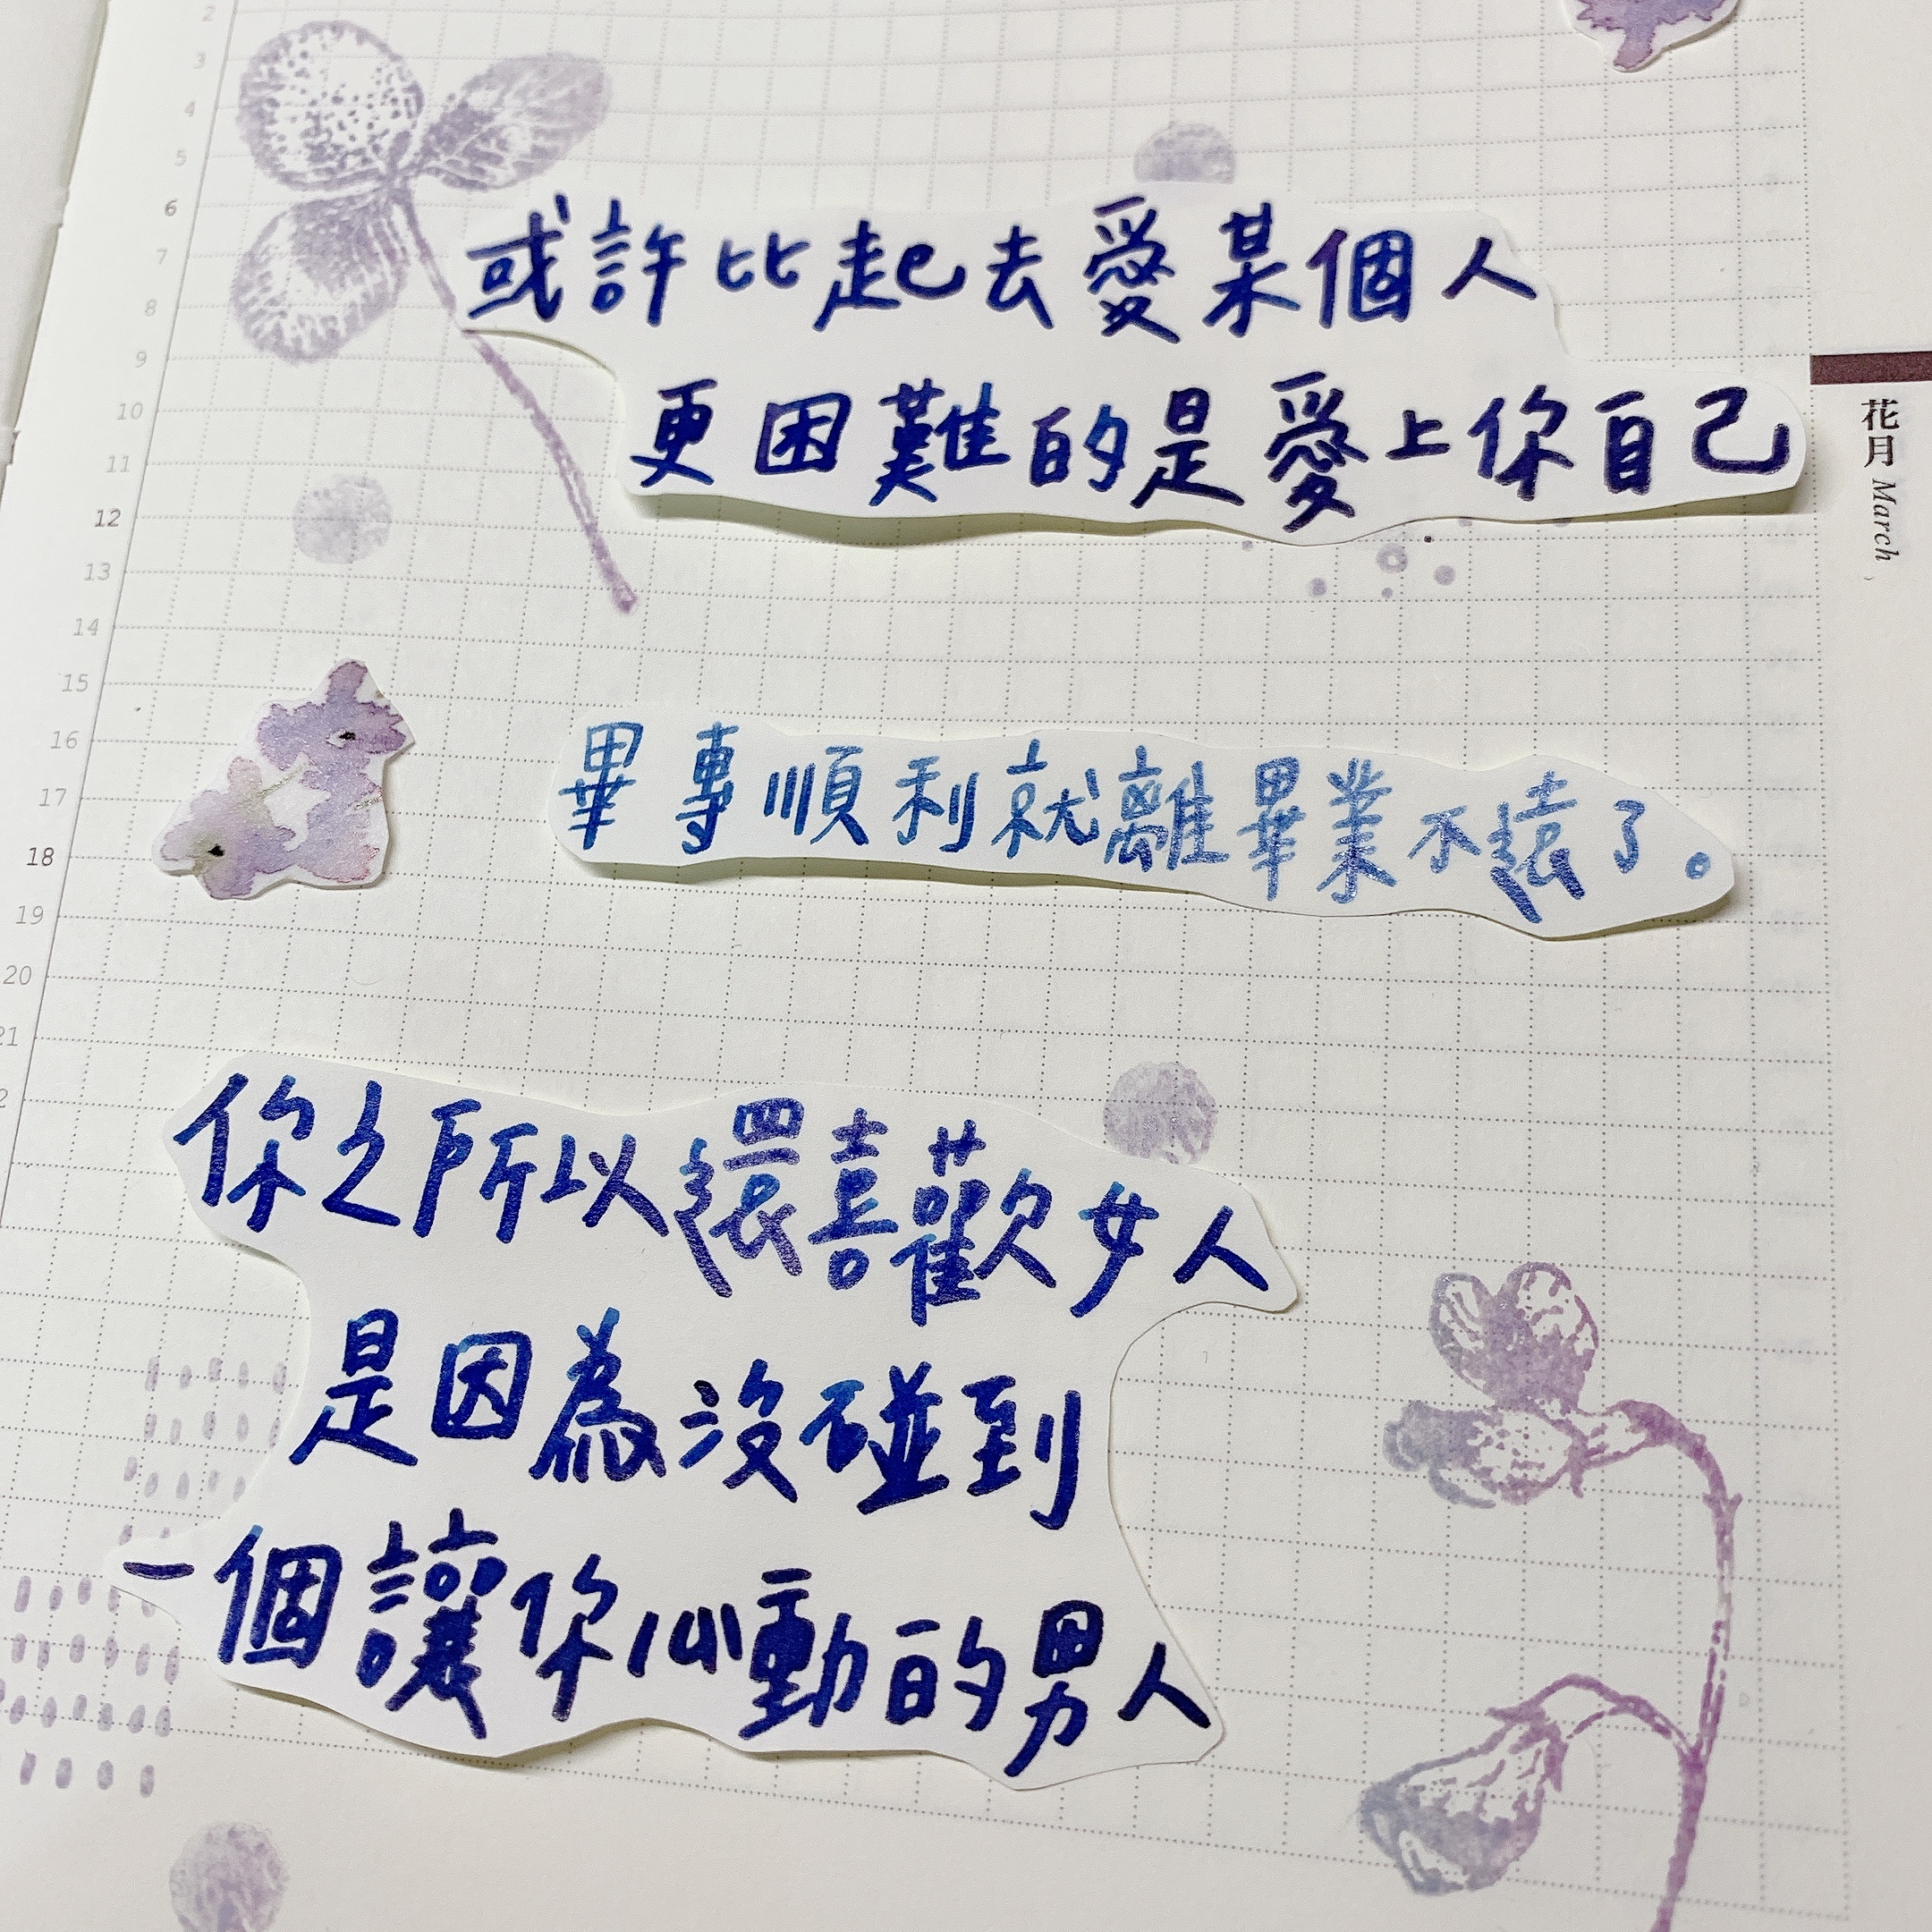 2
3
4
5
6
7
8
9
10
11
12
13
14
15
16
17
18
19
20
21
2
或許比起去愛某個人
更困難的是愛上你自己
花月 March
畢專順利就離畢業不遠了。
你之所以還喜歡女人
是因為沒碰到
一個讓你心動的男人